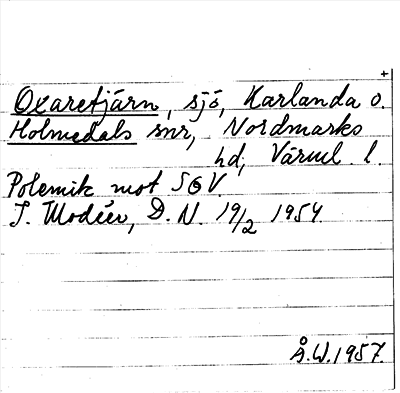 +
Oxaretjärn, sjö, Karlanda o.
Holmedals snr, Nordmarks
hd, Värml. l.
Polemik mot SGV.
I. Modéer, D.N. 19/2 1954
Å.W.1957.